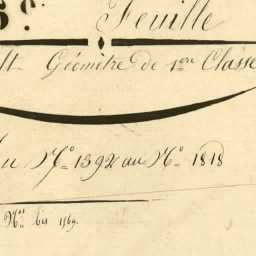 6e. Feuille
lt Géomètre de 1ere Classe
Du N° 1392 au N° 1818
Nos. bis 1569.